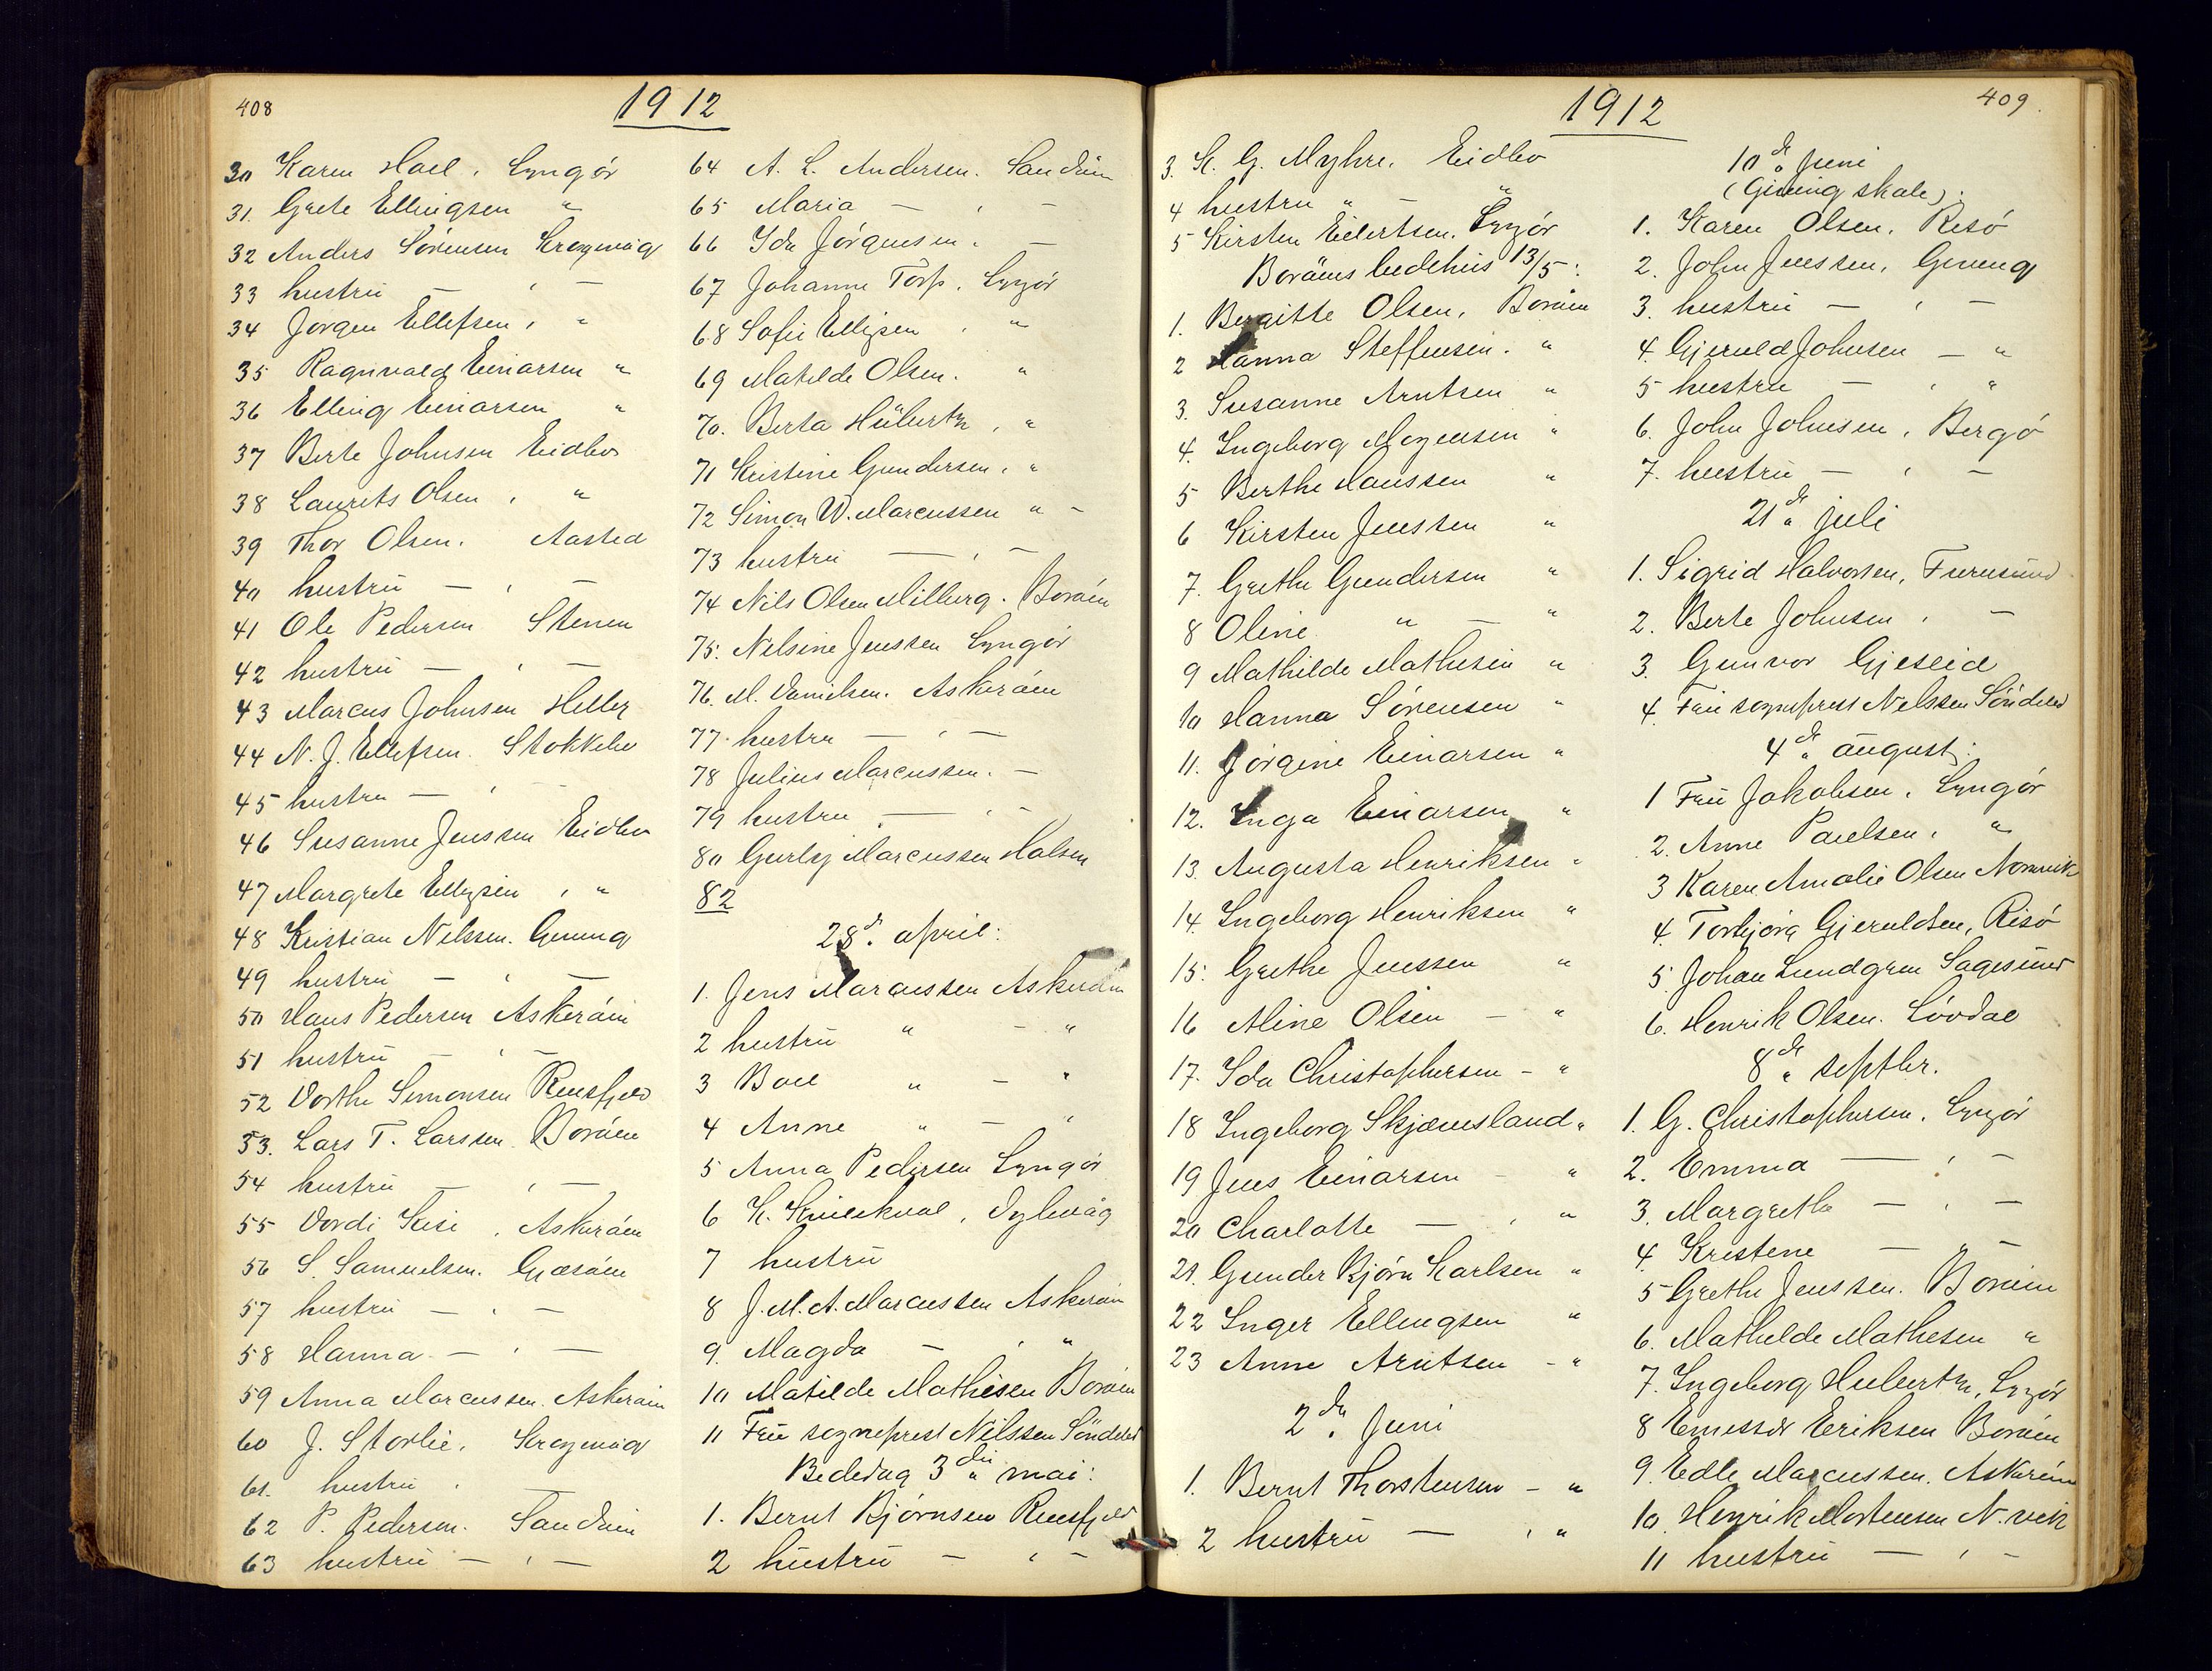 408
1912
30 Karen Hall, Lyngör
31. Grete Ellingsen "
32 Anders Sörensen Krogevåg
33 hustru — , —
34 Jorgen Ellefsen , "
35 Ragnvald Einarsen "
36 Elling Einarsen "
37 Berte Johnsen Eidbo
38 Laurits Olsen , "
39 Thor Olsen. Aasted
40 hustru — , —
41 Ole Pedersen Stenen
42 hustru — , —
43 Marcus Johnsen
44 N. J. Ellefsen. Stokkebo
45 hustru — ,
46 Susanne Jenssen Eidbo
47 Margrete Ellingsen , "
48 Kristian Nilssen. Gjeving
49 hustru — , —
50 Hans Pedersen Askeröen
51 hustru — , —
52 Dorthe Simonsen Rensfjeld
53. Lars T. Larssen Boröen
54 hustru — , —
55 Dordi , Askeröen
56 S. Samuelsen.
57 hustru — , —
58 Hanna — , —
59 Anna Marcussen. Askeröen
60 J. Storlie. Krogevåg
61. hustru , —
62 P. Pedersen. Sandöen
63 hustru — , —
64 A. L. Andersen. Sandöen
65 Maria — , —
66 Ida Jörgensen. —
67 Johanne Torp. Lyngör
68 Sofie Ellingsen , "
69 Matilde Olsen. "
70. Berta Hubertz , "
71 Kristine Gundersen , "
72 Simon W. Marcussen " -
73 hustru — , —
74 Nils Olsen Milberg. Boröen
75. Nilsine Jenssen Lyngör
76. M. Danielsen. Askeröen
77. hustru — , —
78 Julius Marcussen. —
79 hustru — , —
80 Marcussen Holsen
82
28de april:
1. Jens Marcussen Askeröen
2 hustru " — "
3 Boel " — "
4 Anne " — "
5 Anna Pedersen Lyngör
6 K. , Dybvåg
7 hustru
8 J. M. A. Marcussen Askeröen
9. Magda — , "
10 Matilde Mathisen Boröen
11 Fru sogneprest Nilssen Söndeled
Bededag 3die mai:
1. Bernt Björnsen Rensfjeld
2 hustru — , —
1912
409.
3. K. G. Myhre. Eidbo
4 hustru " — "
5 Kirsten Eilertsen. Lyngör
Boröens bedehus 13/5:
1. Birgitte Olsen. Boröen
2 Hanna Steffensen. "
3. Susanne Arntsen "
4. Ingeborg Mogensen "
5 Berthe Hanssen "
6 Kirsten Jenssen "
7. Grethe Gundersen "
8 Oline " — "
9 Mathilde Mathisen "
10 Hanna Sörensen "
11. Jörgine Einarsen "
12. Inga Einarsen "
13. Augusta Henriksen "
14. Ingeborg Henriksen "
15. Grethe Jenssen "
16 Aline Olsen — "
17. Ida Christophersen - "
18 Ingeborg Skjæmsland "
19 Jens Einarsen - "
20 Charlotte — , "
21. Gunder Björn Karlsen "
22 Inger Ellingsen "
23 Anne Arntsen - "
2den Juni
1. Bernt Thorstensen - "
2 hustru — , "
10de Juni
(Gjeving skole):
1. Karen Olsen, Risö
2. John Jenssen, Gjeving
3. hustru — , —
4. Gjeruld Johnsen — "
5 hustru — , "
6. John Johnsen, Bergö
7. hustru — , —
21de juli
1. Sigrid Halvorsen, Furusund
2. Berte Johnsen , —
3. Gunvor Gjeseid
4. Fru sogneprest Nilssen Söndeled
4de august:
1 Fru Jakobsen. Lyngör
2. Anne Paulsen. "
3 Karen Amalie Olsen Nordvik
4. Torbjörg Gjeruldsen, Risö
5. Johan Lundgren Sagesund
6. Henrik Olsen. Lövdal
8de septbr.
1. G. Christophersen. Lyngör
2. Emma — , —
3. Margrethe — , —
4. Kristene — " —
5 Grethe Jenssen. Boröen
6. Mathilde Mathesen "
7. Ingeborg Hubertz, Lyngör
8 Eriksen Boröen
9. Edle Marcussen. Askeröen
10. Henrik Mortensen N.vik
11 hustru — , —